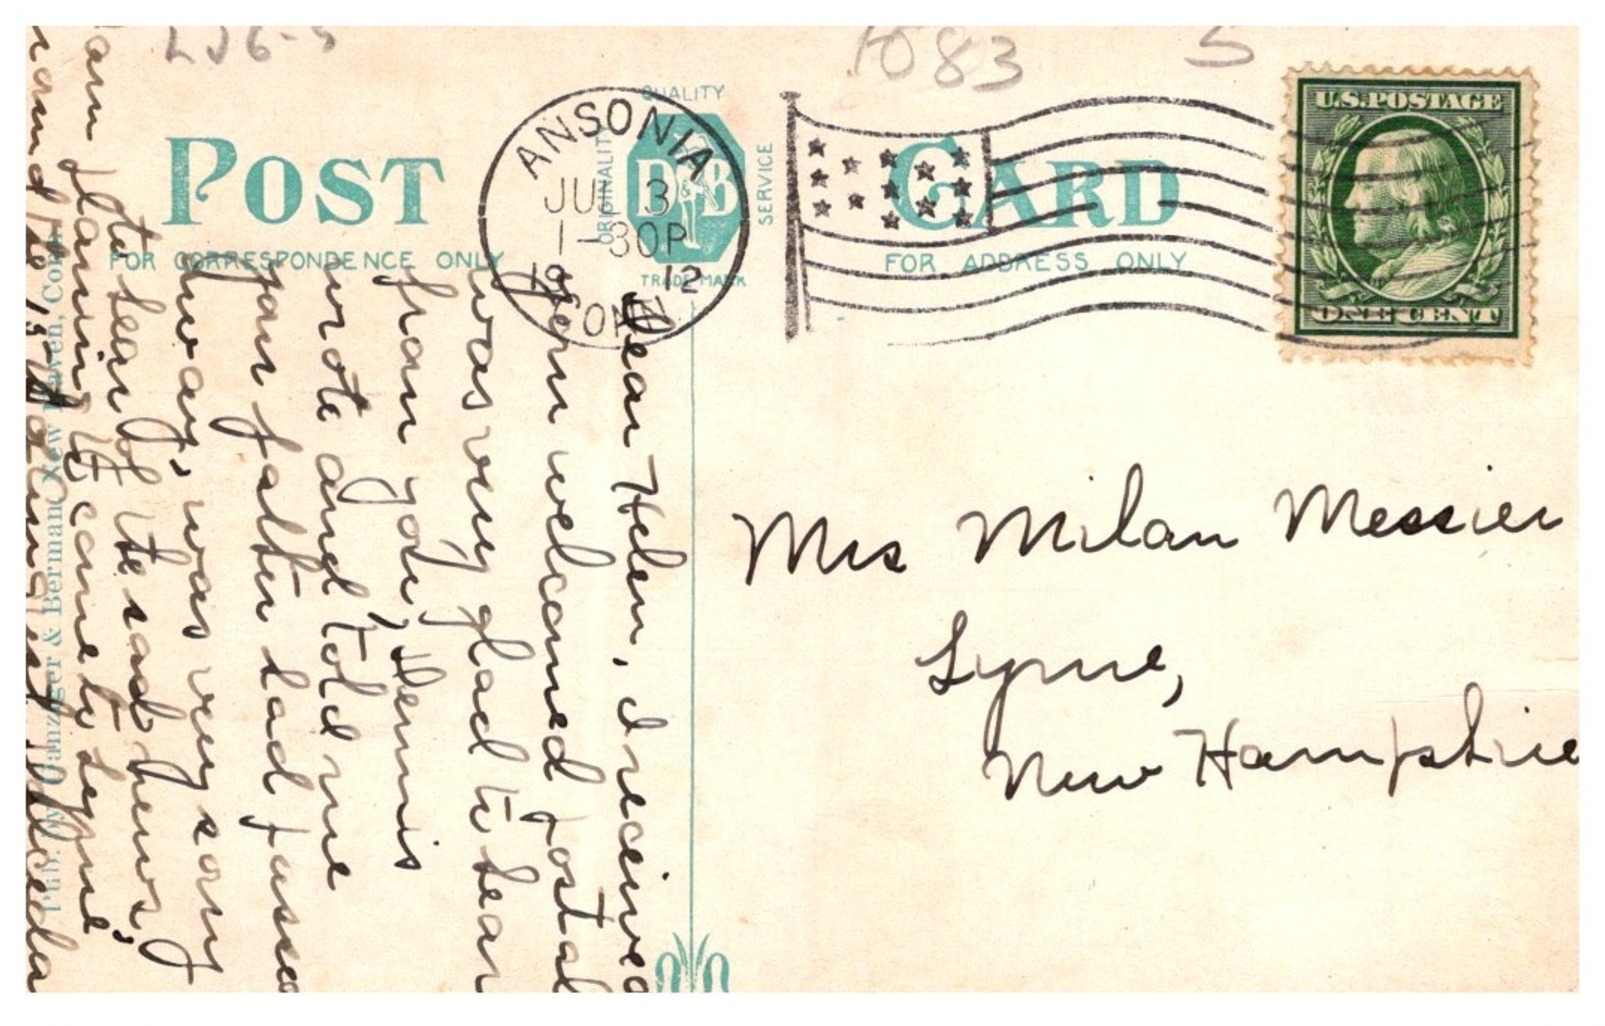 LJ6-5
1083
5
QUALITY
ORIGINALITY
SERVICE
TRADE MARK
D & B
POST CARD
FOR CORRESPONDENCE ONLY
FOR ADDRESS ONLY
ANSONIA
JUL 3
1-30P
1912
CONN
U.S. POSTAGE
ONE CENT
Dear Helen, I received
your welcomed postal
was very glad to hear
from you, Dennis
wrote and told me
your father had passed
away, was very sorry
to hear of the sad news,
am planning to come to Lyme
around the 15th
Pub. by Danziger & Berman, New Haven, Conn.
Mrs Milan Messier
Lyme,
New Hampshire